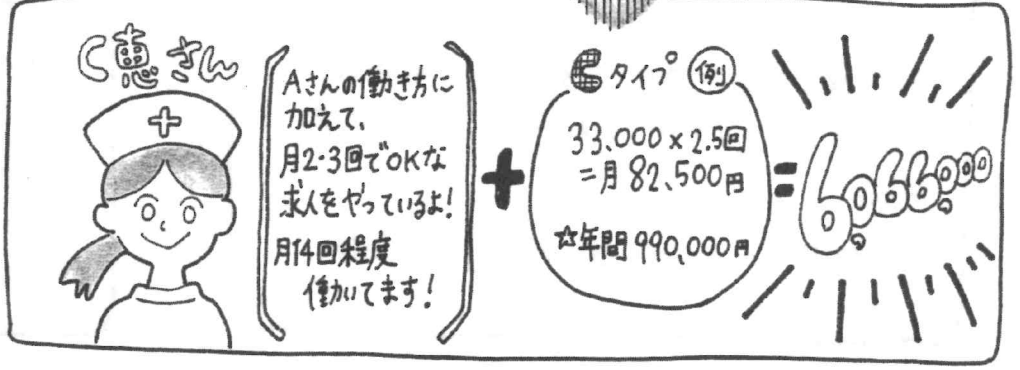 C恵さん
Aさんの働き方に
加えて、
月2・3回でOKな
求人をやっているよ!
月14回程度
働いてます!
+
Cタイプ 例
33,000×2.5回
=月82,500円
☆年間990,000円
=6,066,000